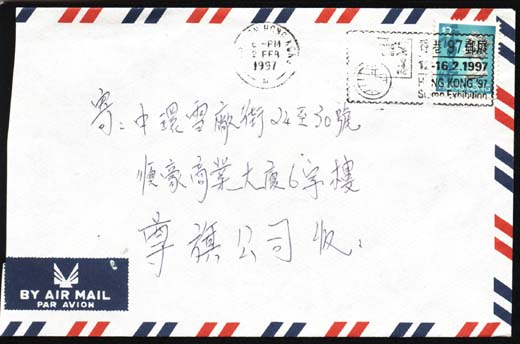 HONG KONG
6 - PM
FEB
1997
香港 '97 郵展
12-16.2.1997
HONG KONG '97
Stamp Exhibition
寄：中環雪廠街24至30號
順豪商業大廈6字樓
尊旗公司收
BY AIR MAIL
PAR AVION